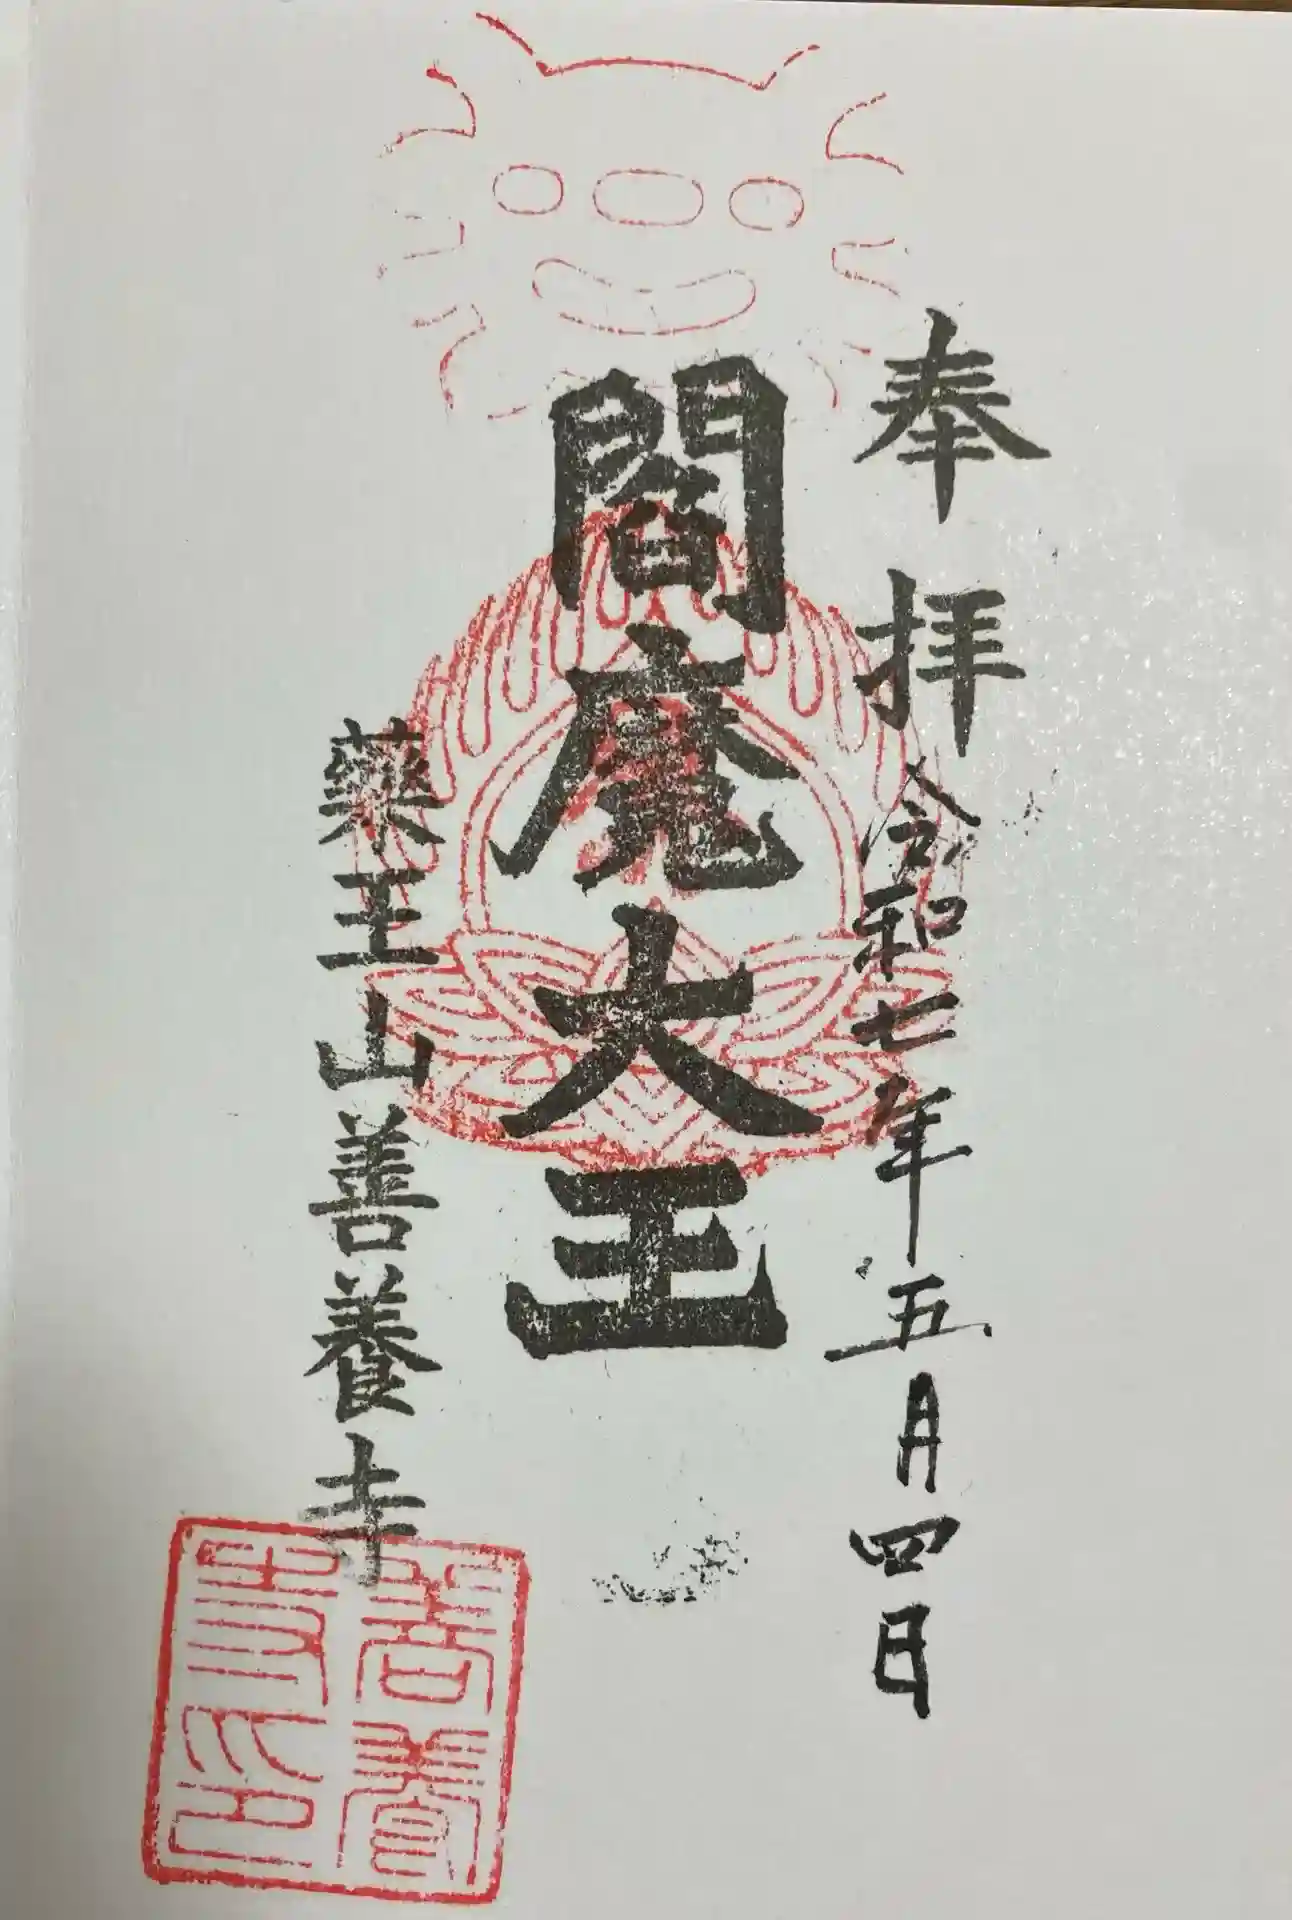 奉拝
令和七年五月四日
閻魔大王
藥王山善養寺
善養寺印